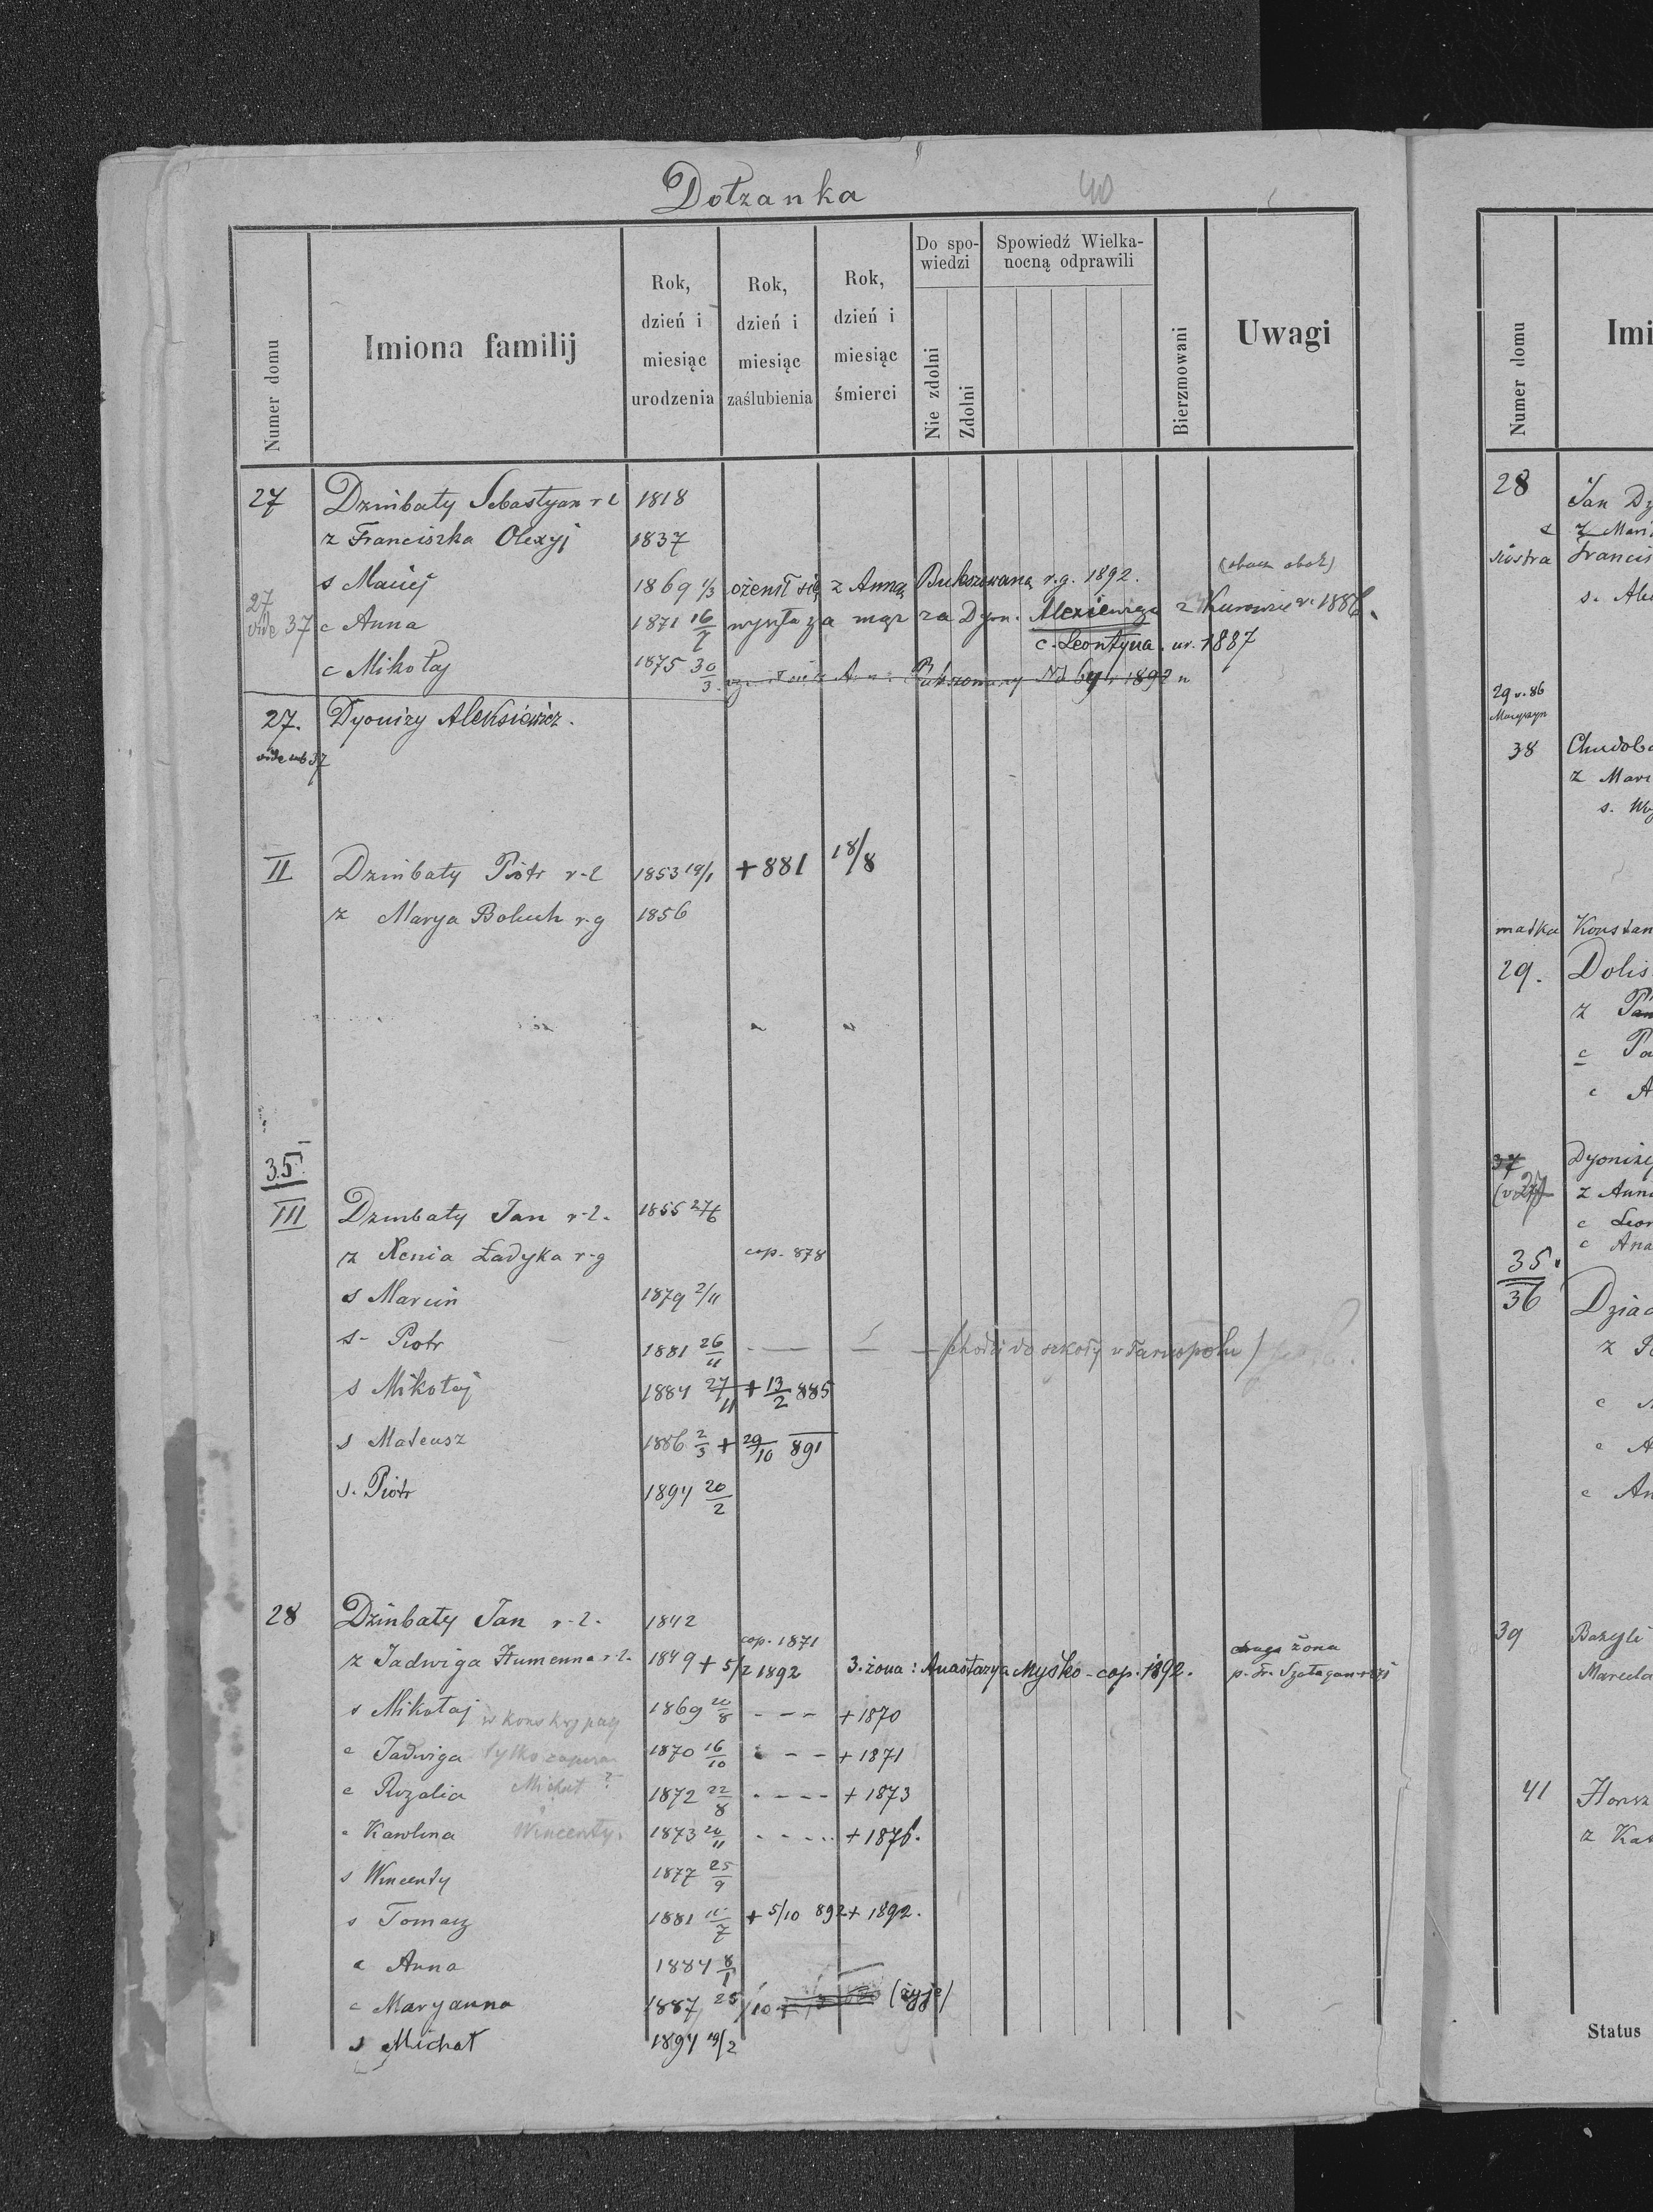 Dołzanka 40
Numer domu
Imiona familij
Rok, dzień i miesiąc urodzenia
Rok, dzień i miesiąc zaślubienia
Rok, dzień i miesiąc śmierci
Do spowiedzi
Nie zdolni
Zdolni
Spowiedź Wielkanocną odprawili
Bierzmowani
Uwagi
27 Dzinbaty Sebastyan r l 1818
z Franciszka Olexyj 1837
s Maciej 1869 1/3 ożenił się z Anną Bukszowaną r.g. 1892. (obacz obok)
27
vide 37 c Anna 1871 16/7 wyszła za mąż za Dyon. Alexiewicza z 1886.
c. Leontyna ur. 1887
c Mikołaj 1875 30/3 1892
27. Dyonizy Aleksiewicz.
vide sub 37
II Dzinbaty Piotr r-l 1853 19/1 +881 18/8
z Marya Boluch r-g 1856
35
III Dzinbaty Jan r-l. 1855 27/6
z Xenia Ładyka r-g cop. 878
s Marcin 1879 2/11
s- Piotr 1881 26/11 - - - (chodzi do szkoły w Tarnopolu)
s Mikołaj 1884 27/11 + 13/2 885
s Mateusz 1886 2/3 + 29/10 891
s. Piotr 1894 20/2
28 Dzinbaty Jan r-l. 1842
cop. 1871
z Jadwiga Humenna r-l. 1849 + 5/2 1892 3. żona: Anastazya Myśko - cop. 1892. druga żona
s Mikołaj 1869 20/8 - - - + 1870
c Jadwiga tylko 1870 16/10 - - - + 1871
c Rozalia Michał ? 1872 22/8 - - - - + 1873
c Karolina Wincenty. 1873 20/11 - - - - + 1876.
s Wincenty 1877 25/9
s Tomasz 1881 /7 + 5/10 892 + 1892.
c Anna 1884 8/1
c Maryanna 1887 25/10 (żyje)
s Michał 1894 19/2
Numer domu
Imi
28 Jan Dy
z Mari
siostra Francis
s. Ale
29 v. 86
38 Chudoba
z Mary
s. Woj
matka Konstan
29. Dolis
z Pan
c Pa
c A
37 Dyonizy
z Anna
c Leon
c Ana
35.
36 Dziad
c A
c An
39 Bazyli
41
z Kat
Status